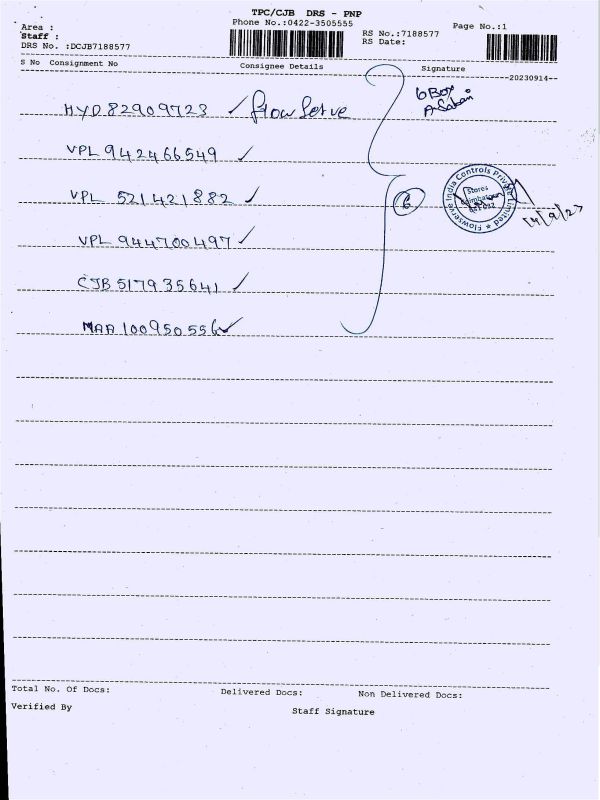 TPC/CJB DRS - PNP
Area :
Phone No.:0422-3505555
Page No.:1
Staff :
RS No.:7188577
DRS No. :DCJB7188577
RS Date:
S No Consignment No
Consignee Details
Signature
20230914
HYD82909723 ✓ flowserve
6 Box
VPL 942466549 ✓
VPL 521421882 ✓
6
Flowserve India Controls Private Limited
Stores
Coimbatore
VPL 944700497 ✓
CJB 517935641 ✓
MAA 100950556 ✓
Total No. Of Docs:
Delivered Docs:
Non Delivered Docs:
Verified By
Staff Signature